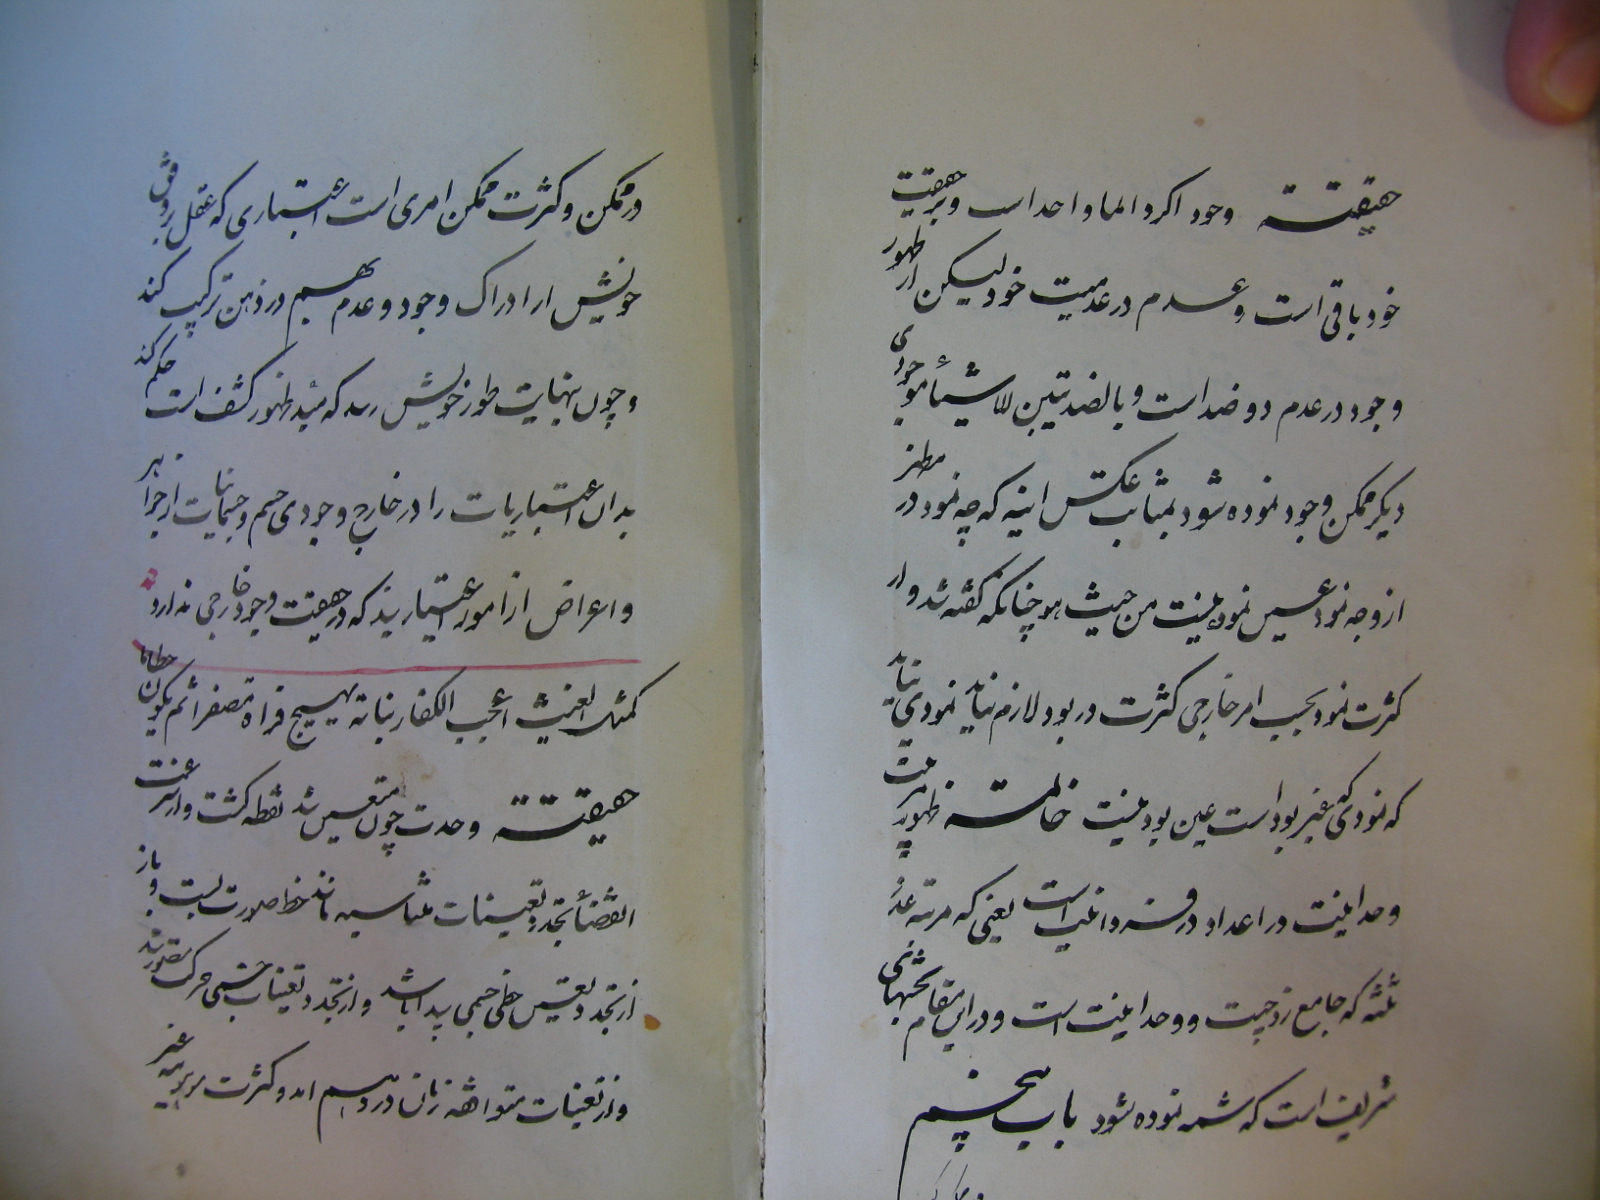 حقیقته وجود اگر دائما واحد است و بر حقیقت
خود باقی است و عدم در عدمیت خود لیکن از ظهور
وجود در عدم دو ضد است و بالضد تتبین الاشیاء موجودی
دیگر ممکن وجود نموده شود بمثابت عکس اینه که چه نمود در مظهر
از وجه نمود عین نمود نیست من حیث هو چنانکه گفته شد و از
کثرت نمود بحسب امر خارجی کثرت در بود لازم نیاید نمودی نیاید
که نمودی که غیر بود است عین بود نیست خاتمته ظهور مرتبت
وحدانیت در اعداد در فردانیت است یعنی که مرتبه عدد
ثلثه که جامع زوجیت و وحدانیت است و در این مقام بحثهای
شریف است که شمه نموده شود باب پنجم
در ممکن و کثرت ممکن امری است اعتباری که عقل بر وفق
خویش از ادراک وجود و عدم بهم در ذهن ترکیب کند
و چون بنهایت طور خویش رسد که مبدء ظهور کشف است حکم کند
بدان اعتباریات را در خارج وجودی جسم و جسمانیات از جواهر
و اعراض از امور اعتباریند که در حقیقت وجود خارجی ندارد
کمثل الغیث اعجب الکفار نباته ثم یهیج فراه مصفرا ثم یکون حطاما
حقیقته وحدت چون متعین شد نقطه گشت و از سرعت
انقضا تجدد تعینات متشابه مانند خط صورت بست و باز
از تجدد تعین خطی جسمی پیدا باشد و از تجدد تعینات جسمی حرکت متصور شد
و از تعینات متوافقه زمان در وهم امد و کثرت موهومه غیر